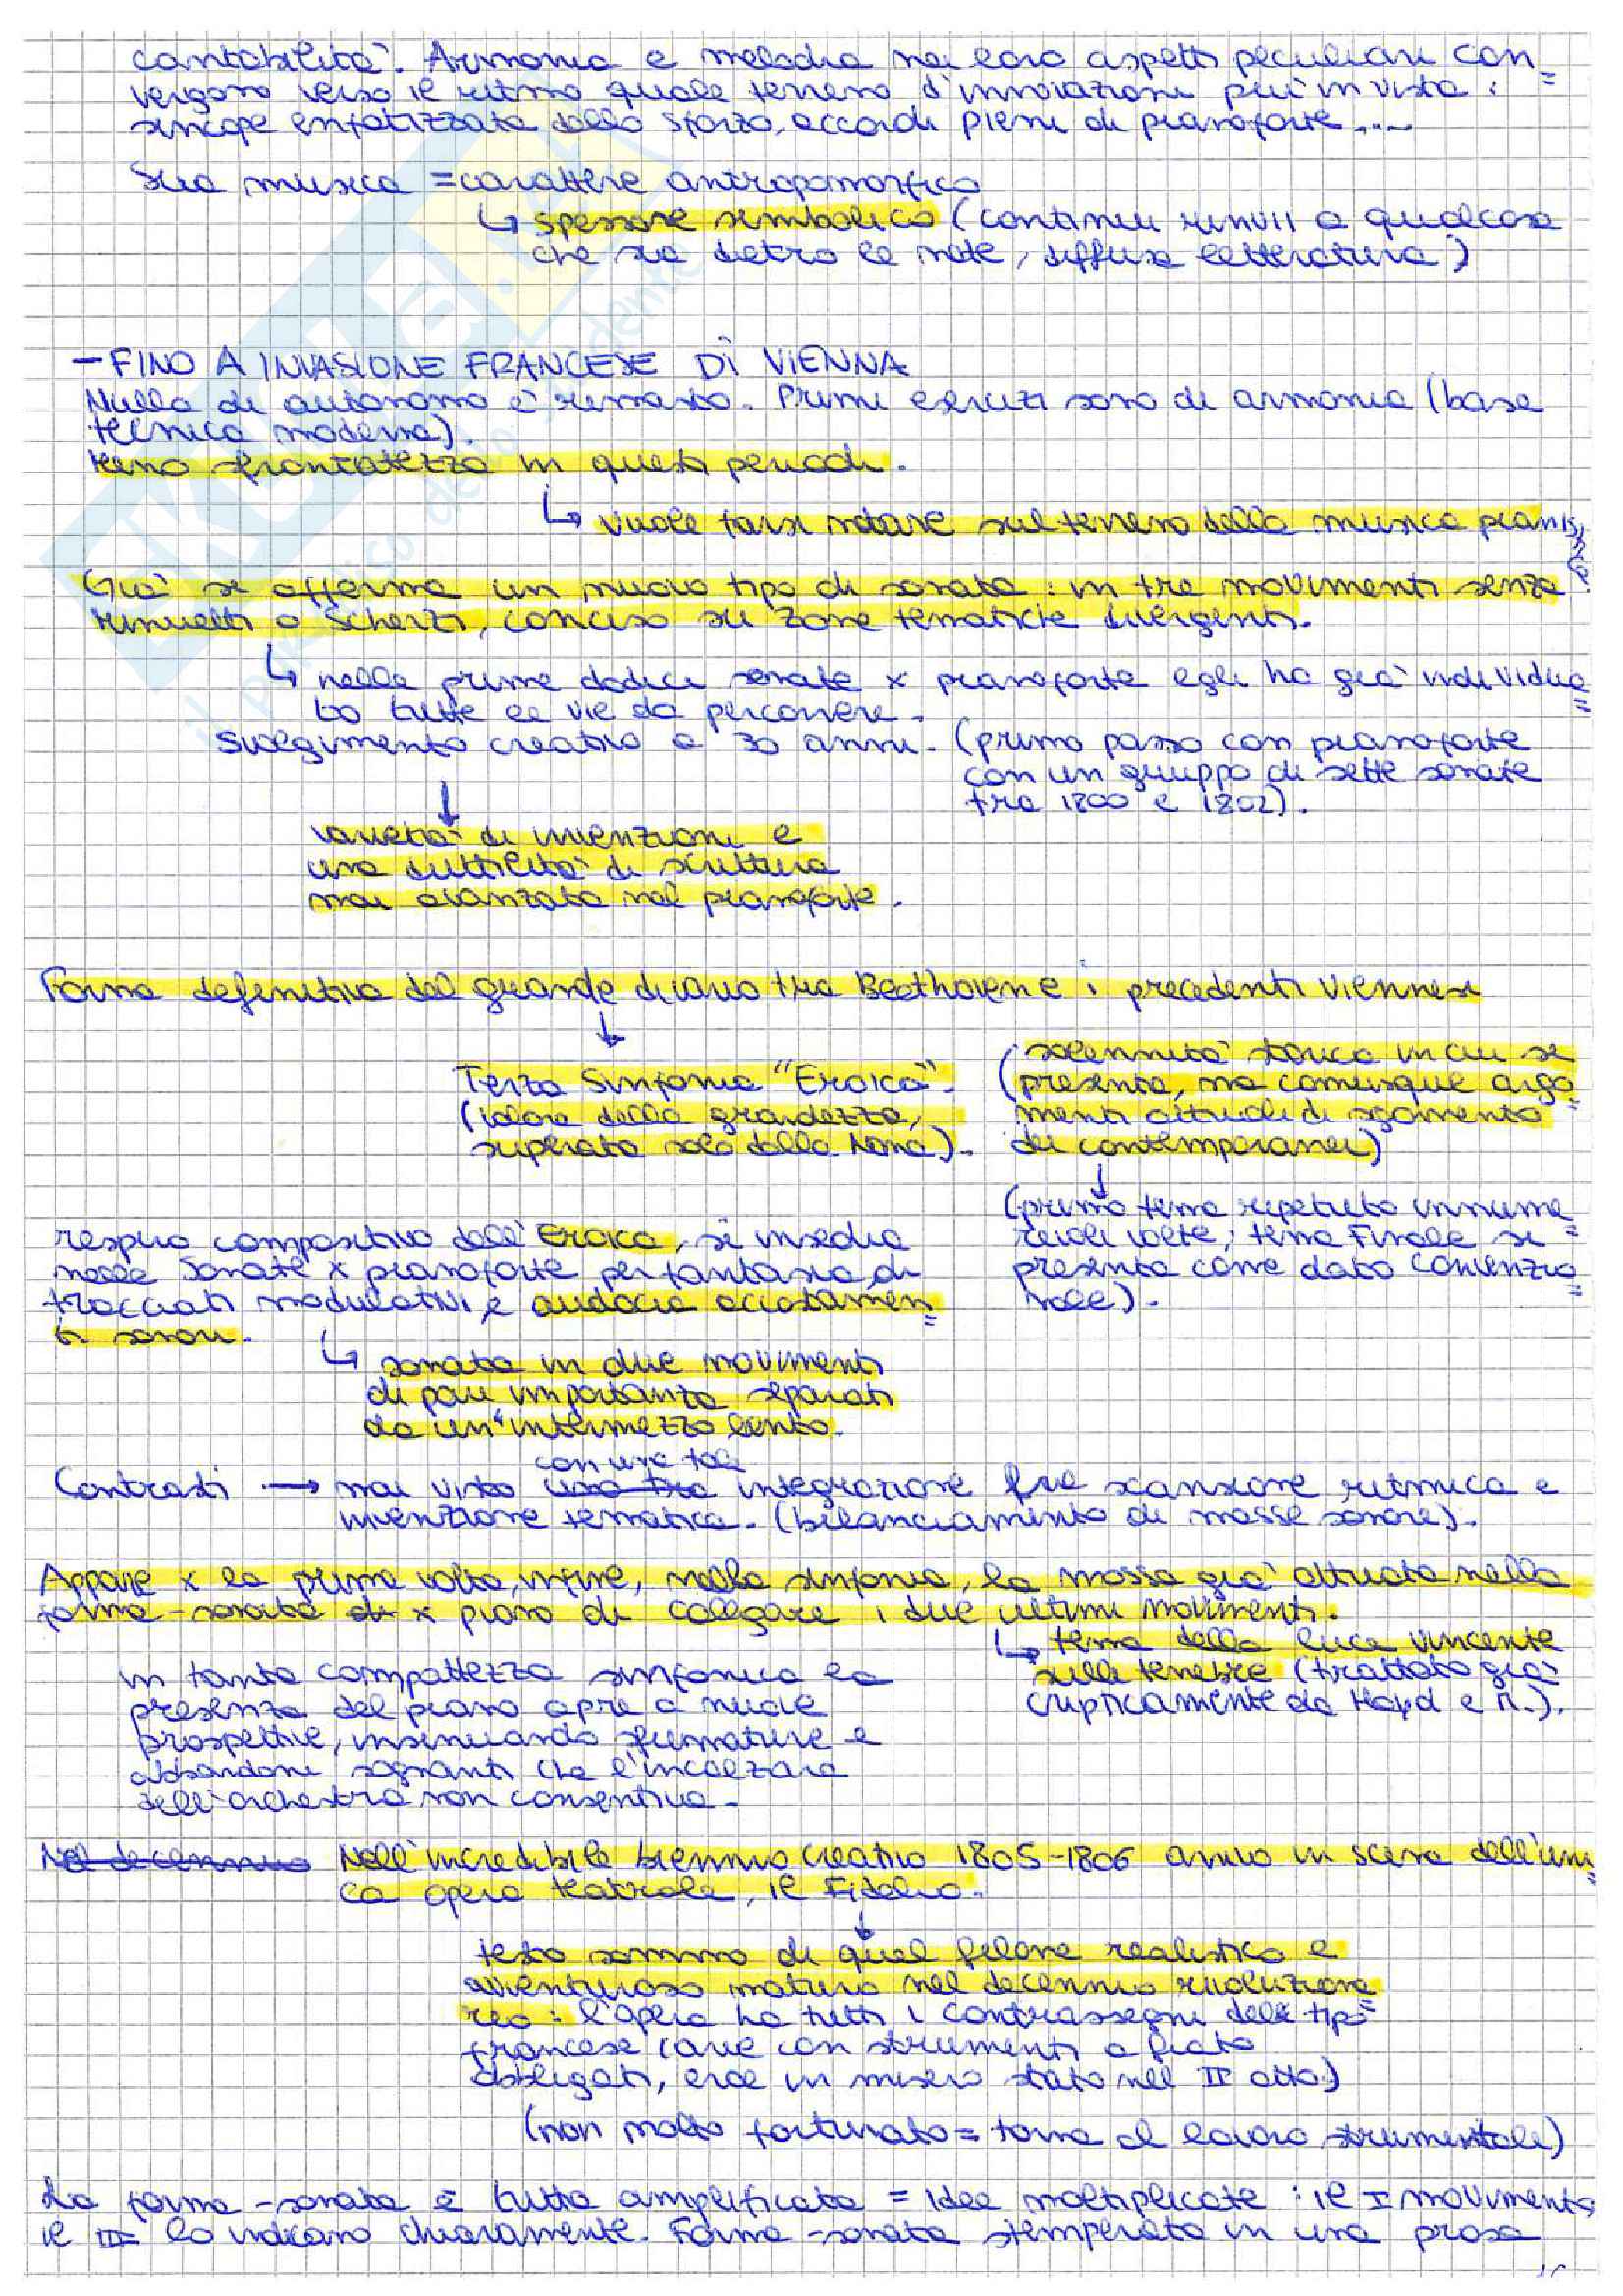 cantabilità. Armonia e melodia nei loro aspetti peculiari con=
vergono verso il ritmo quale terreno d'innovazioni più in vista:
sincope enfatizzata dallo sforzo, accordi pieni di pianoforte,...
Sua musica = carattere antropomorfico
↳ spessore simbolico (continui rinvii a qualcosa
che sia dietro le note, diffusa letteratura)
- FINO A INVASIONE FRANCESE DI VIENNA
Nulla di autonomo è rimasto. Primi esercizi sono di armonia (base
tecnica moderna).
Meno sfrontatezza in questi periodi.
↳ vuole farsi notare sul terreno della musica pianis
Già si afferma un nuovo tipo di sonata: in tre movimenti senza
Minuetti o Scherzi, conciso su zone tematiche divergenti.
↳ nelle prime dodici sonate x pianoforte egli ha già individua=
to tutte le vie da percorrere.
Svolgimento creativo a 30 anni. (primo passo con pianoforte
con un gruppo di sette sonate
tra 1800 e 1802).
↓
varietà di invenzioni e
una duttilità di scrittura
mai avanzata nel pianoforte.
Forma definitiva del grande divario tra Beethoven e i precedenti viennesi
↓
Terza Sinfonia "Eroica".
(valore della grandezza,
superata solo dalla Nona).
(solennità storica in cui si
presenta, ma comunque argo=
menti attuali di sgomento
dei contemporanei)
↓
(primo tema ripetuto innume=
revoli volte; tema Finale si
presenta come dato convenzio=
nale).
respiro compositivo dell'Eroica, si insedia
nelle Sonate x pianoforte per fantasia di
tracciati modulativi e audacia accostamen=
ti sonori.
↳ sonata in due movimenti
di pari importanza separati
da un'intermezzo lento.
con una tale
Contrasti → mai visto integrazione fra scansione ritmica e
invenzione tematica. (bilanciamento di masse sonore).
Appare x la prima volta, infine, nella sinfonia, la mossa già attuata nella
forma-sonata x piano di collegare i due ultimi movimenti.
↳ tema della luce vincente
sulle tenebre (trattato già
cripticamente da Hayd e M.).
in tanta compattezza sinfonica la
presenza del piano apre a nuove
prospettive, insinuando sfumature e
abbandoni sognanti che l'incalzare
dell'orchestra non consentiva.
Nel decennio Nell'incredibile biennio creativo 1805-1806 arrivo in scena dell'uni=
ca opera teatrale, il Fidelio.
↓
testo sommo di quel filone realistico e
avventuroso maturo nel decennio rivoluziona=
rio: l'opera ha tutti i contrassegni delle tipo
francese (arie con strumenti a fiato
obbligati, eroe in misero stato nel II atto)
(non molto fortunato = torna al lavoro strumentale)
La forma-sonata è tutta amplificata = idee moltiplicate: il I movimento,
il III lo indicano chiaramente. Forma-sonata stemperata in una prosa